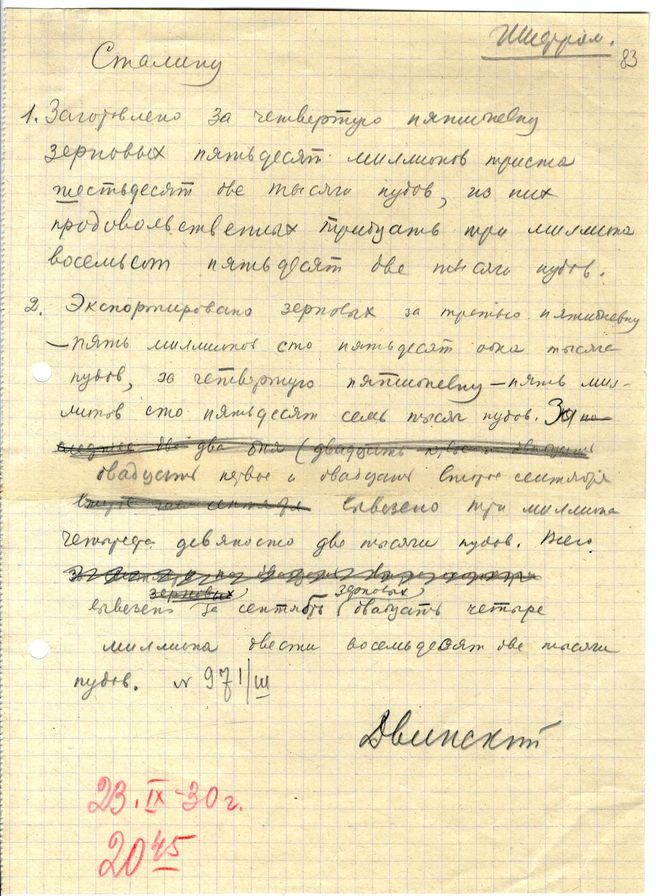 Шифром.
83
Сталину
1. Заготовлено за четвертую пятидневку
зерновых пятьдесят миллионов триста
шестьдесят две тысячи пудов, из них
продовольственных тридцать три миллиона
восемьсот пятьдесят две тысячи пудов.
2. Экспортировано зерновых за третью пятидневку
— пять миллионов сто пятьдесят одна тысяча
пудов, за четвертую пятидневку — пять мил-
лионов сто пятьдесят семь тысяч пудов. За по
следние два дня (двадцать первое и двадцать
двадцать первое и двадцать второе сентября
второе сентября вывезено три миллиона
четыреста девяносто две тысячи пудов. Всего
зерновых зерновых
вывезено за сентябрь двадцать четыре
миллиона двести восемьдесят две тысячи
пудов. № 971/ш
Двинский
23.IX-30 г.
20 45